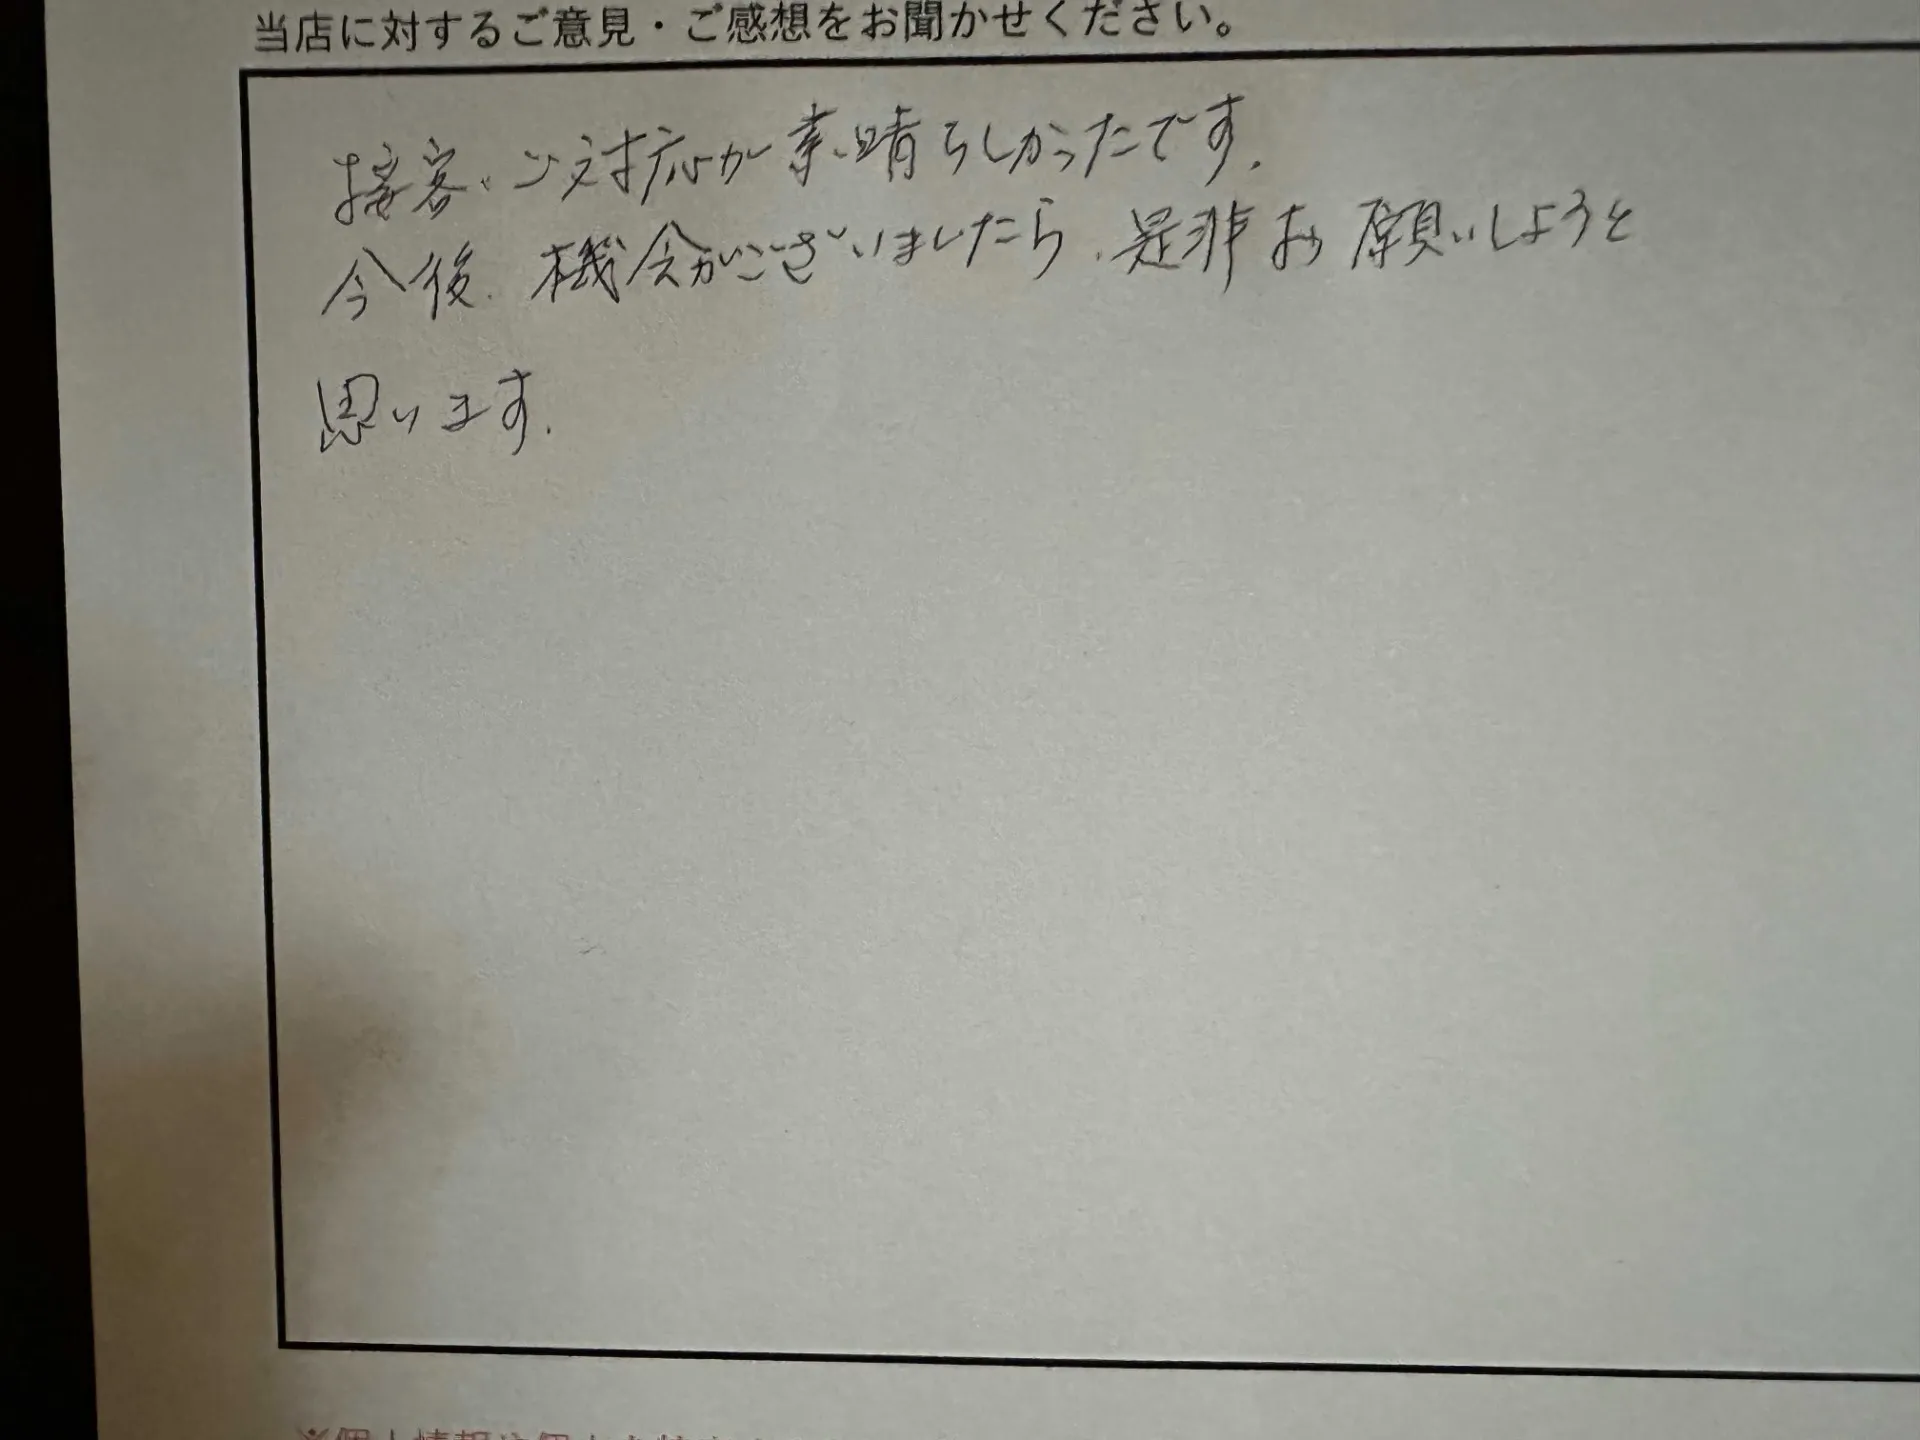 当店に対するご意見・ご感想をお聞かせください。
接客、ご対応が素晴らしかったです.
今後、機会がございましたら、是非お願いしようと
思います.
※個人情報や個人を特